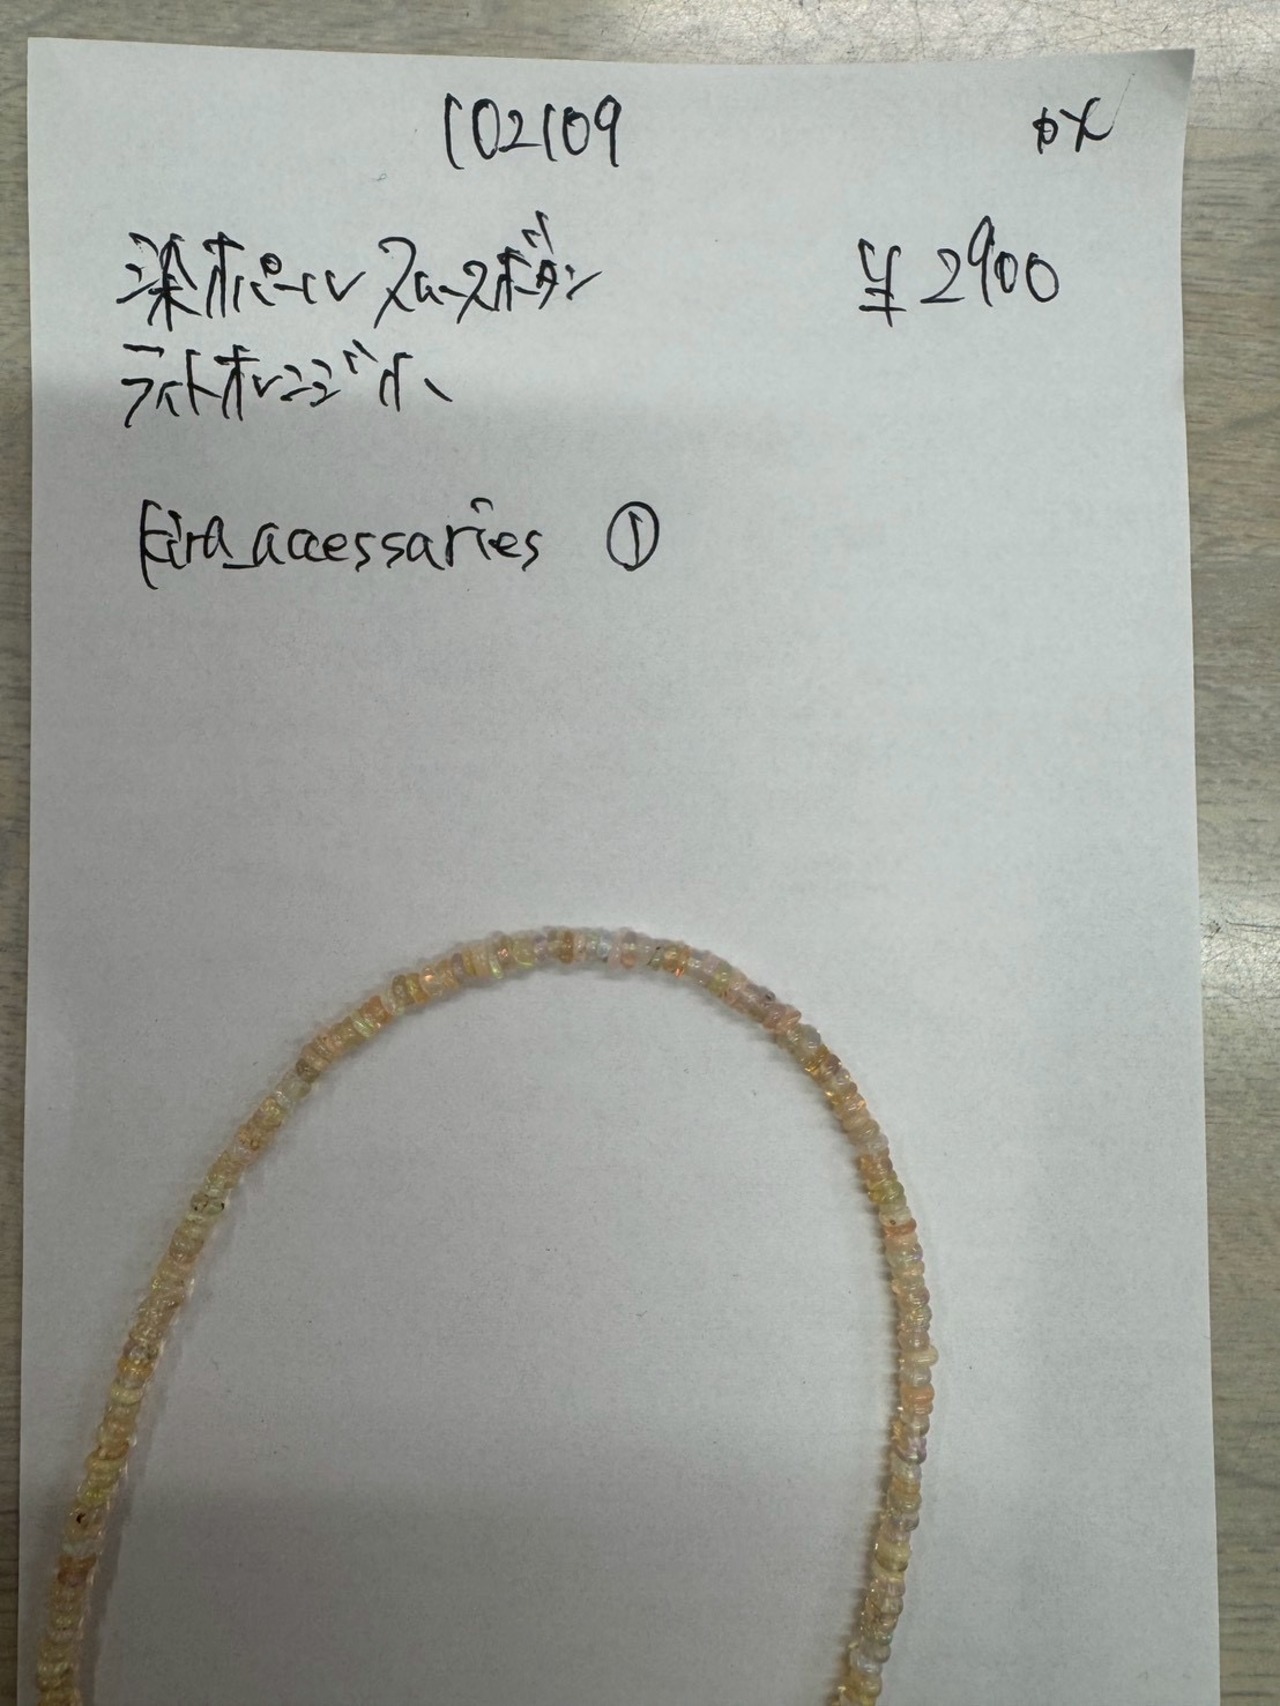 102109
染オパール スムースボタン ¥2900
ライトオレンジ
Eira_accessaries ①